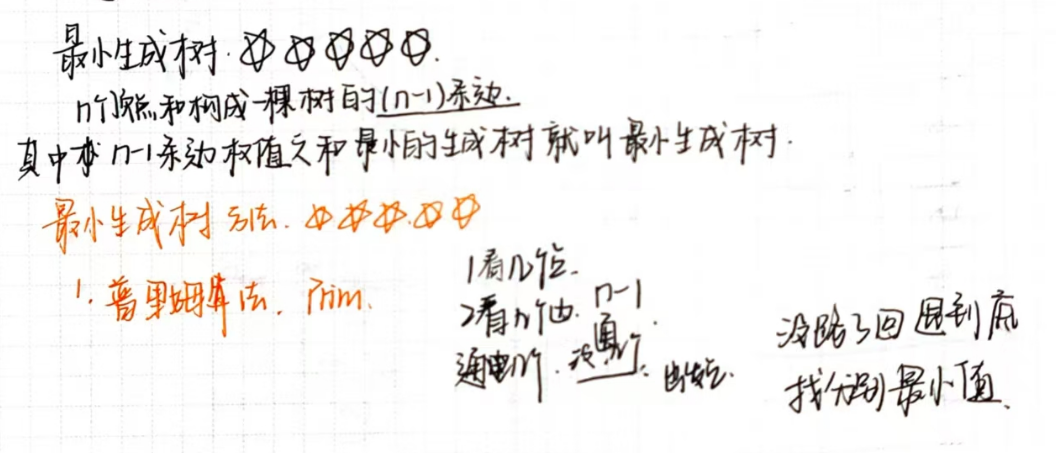 最小生成树.☆☆☆☆☆.
n个顶点和构成一棵树的(n-1)条边.
其中 n-1条边权值之和最小的生成树就叫最小生成树.
最小生成树方法.☆☆☆☆☆
1.普里姆算法. Prim.
1看几个点.
2看几个边. n-1.
通电 没通 出发点.
没路了回退到底
找 最小值.